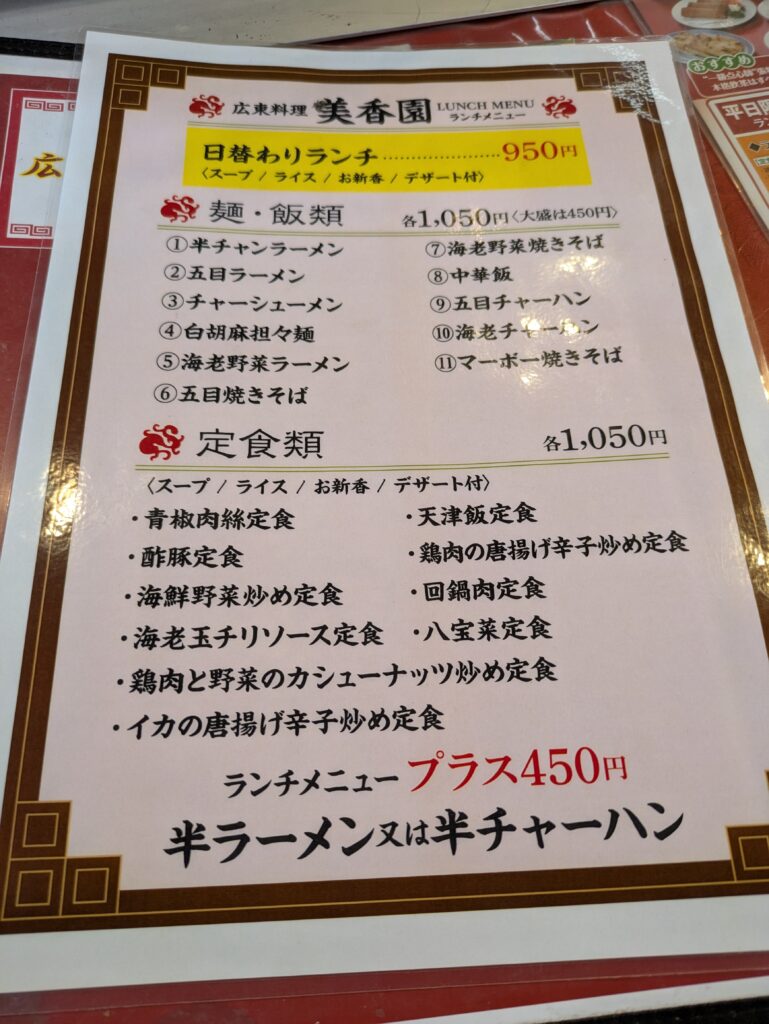 広東料理 美香園 LUNCH MENU
ランチメニュー
日替わりランチ…………………950円
〈スープ / ライス / お新香 / デザート付〉
麺・飯類 各1,050円〈大盛は450円〉
①半チャンラーメン
②五目ラーメン
③チャーシューメン
④白胡麻担々麺
⑤海老野菜ラーメン
⑥五目焼きそば
⑦海老野菜焼きそば
⑧中華飯
⑨五目チャーハン
⑩海老チャーハン
⑪マーボー焼きそば
定食類 各1,050円
〈スープ / ライス / お新香 / デザート付〉
・青椒肉絲定食
・酢豚定食
・海鮮野菜炒め定食
・海老玉チリソース定食
・天津飯定食
・鶏肉の唐揚げ辛子炒め定食
・回鍋肉定食
・八宝菜定食
・鶏肉と野菜のカシューナッツ炒め定食
・イカの唐揚げ辛子炒め定食
ランチメニュープラス450円
半ラーメン又は半チャーハン
広
おすすめ
平日限